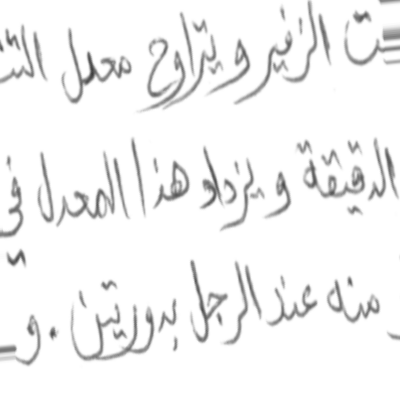 ت الزفير ويتراوح معدل الت
الدقيقة ويزداد هذا المعدل في
منه عند الرجل بدورتين . و